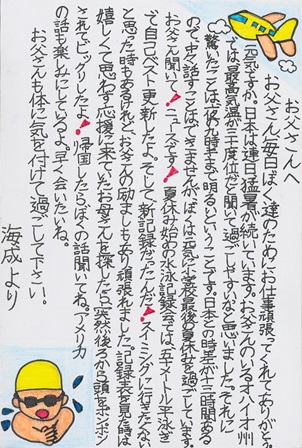 お父さんへ
お父さん毎日ぼく達のためにお仕事頑張ってくれてありがとう。
元気ですか。日本は連日猛暑が続いています。お父さんのいるオハイオ州
では最高気温が三十度位だと聞いて過ごしやすいなと思いました。それに
驚いたことは夜九時まで明るいということです。日本との時差が十三時間ある
ので中々話すことはできませんが、ぼくは元気に小学最後の夏休みを過ごしています。
お父さん聞いて!ニュースです!夏休み始めの水泳記録会では、五十メートル平泳ぎ
で自己ベスト更新したよ。そして新記録だったんだ!スイミングに行きたくない
と思った時もあるけれど、お父さんの励ましもあり頑張れました。記録証を見た時は
嬉しくて思わず応援に来ていたお母さんを探したら、突然後ろから頭をポンポン
されてビックリしたよ!帰国したらぼくの話聞いてね。アメリカ
の話も楽しみにしているよ。早く会いたいね。
お父さんも体に気を付けて過ごして下さい。
海成より